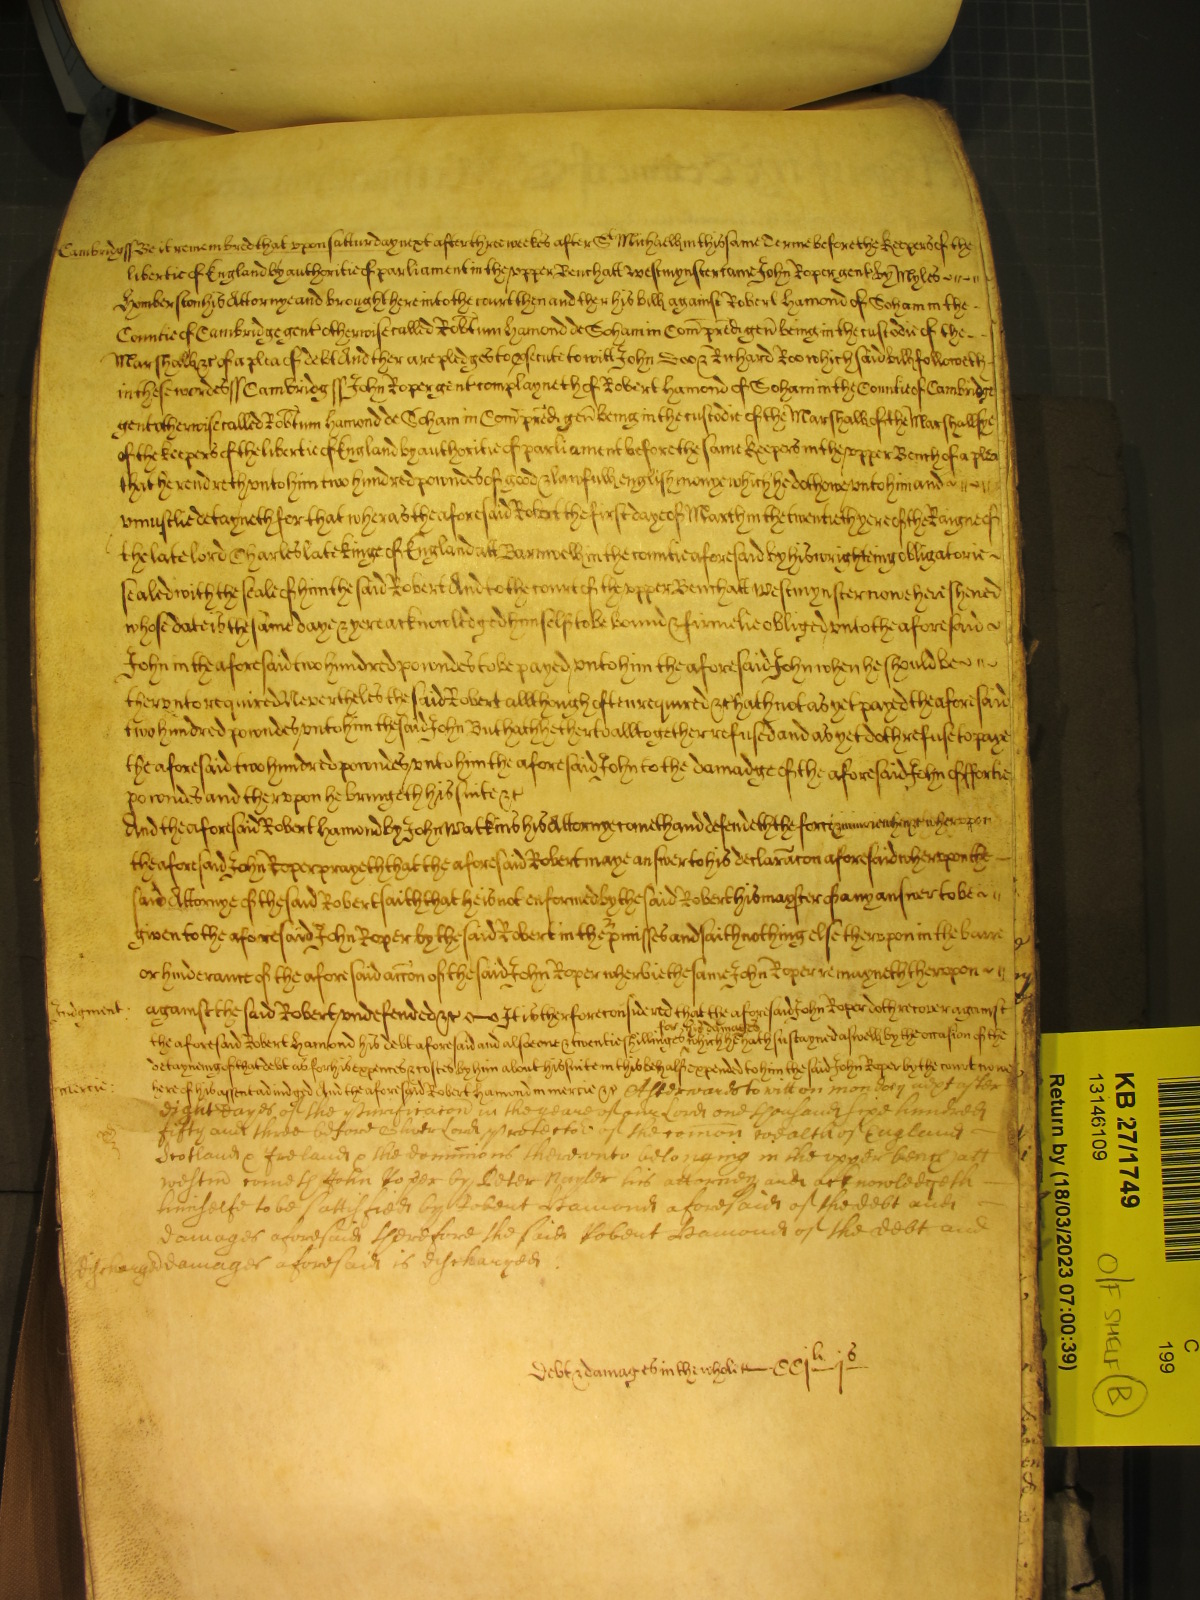 Cambridg ss Be it remembred that upon satturday next after three weekes after St Michaell in this same Terme before the keepers of the
libertie of England by authoritie of parliament in the upper Bench att Westmynster came John Roper gent by Myles
Homberston his Attornye and brought here into the court then and ther his bill against Robert Hamond of Soham in the
Countie of Cambridge gent otherwise called Robtum Hamond de Soham in Com predi gen being in the custodie of the
Marshall &c of a plea of debt And ther are pledges to psecute to witt John Doo & Richard Roo which said bill followeth
in these wordes ss Cambridg ss John Roper gent complayneth of Robert Hamond of Soham in the Countie of Cambridge
gent otherwise called Robtum Hamond de Soham in Com predi gen being in the custodie of the Marshall of the Marshallsye
of the keepers of the libertie of England by authoritie of parliament before the same keepers in the upper Bench of a plea
that he rendreth unto him two hundred powndes of good & lawfull english monye which he doth owe unto him and
uniustlie detayneth for that wheras the aforesaid Robert the first daye of March in the twentieth yere of the Raigne of
the late lord Charles late kinge of England att Barnwell in the countie aforesaid by his wrighteing obligatorie
sealed with the seale of him the said Robert And to the court of the upper Bench att Westmynster nowe here shewed
whose date is the same daye & yere acknowledged himself to be bound & firmelie obliged unto the aforesaid
John in the aforesaid two hundred powndes to be payed unto him the aforesaid John when he should be
therunto required Nevertheles the said Robert allthough often required &c hath not as yet payed the aforesaid
two hundred powndes unto him the said John But hath hetherto alltogether refused and as yet doth refuse to paye
the aforesaid two hundred powndes unto him the aforesaid John to the damadge of the aforesaid John of fortie
powndes and therupon he bringeth his suite &c
And the aforesaid Robert Hamond by John Watkins his Attornye cometh and defendeth the force & iniurie when &c wherupon
the aforesaid John Roper prayeth that the aforesaid Robert maye answer to his declaracon aforesaid wherupon the
said Attornye of the said Robert saith that he is not enformed by the said Robert his mayster of any answer to be
given to the aforesaid John Roper by the said Robert in the pmisses and saith nothing else therupon in the barre
or hinderance of the aforesaid accon of the said John Roper wherbie the same John Roper remayneth therupon
Judgment: against the said Robert undefended &c It is therfore considered that the aforesaid John Roper doth recover against
the aforesaid Robert Hamond his debt aforesaid and alsoe one & twentie shillinges for his damages which he hath sustayned aswell by the occasion of the
detayneing of that debt as for his expences & costes by him about his suite in this behalf expended to him the said John Roper by the court nowe
mercie: here of his assent adiudged And the aforesaid Robert Hamond in mercie &c Afterwards to witt on monday next after
eight dayes of the purificacon in the yeare of our Lord one thousand sixe hundred
fifty and three before Oliver Lord protector of the comon wealth of England
Scotland & Ireland & the dominions thereunto belonging in the upper bench att
westm cometh John Roper by Peter Nayler his attorney and acknowledgeth
himselfe to be sattisfied by Robert Hamond aforesaid of the debt and
damages aforesaid therefore the said Robert Hamond of the debt and
discharged damages aforesaid is discharged.
Debt & damages in the whole CCjli js
KB 27/1749
13146109
Return by (18/03/2023 07:00:39)
O/F SHELF B
C
199